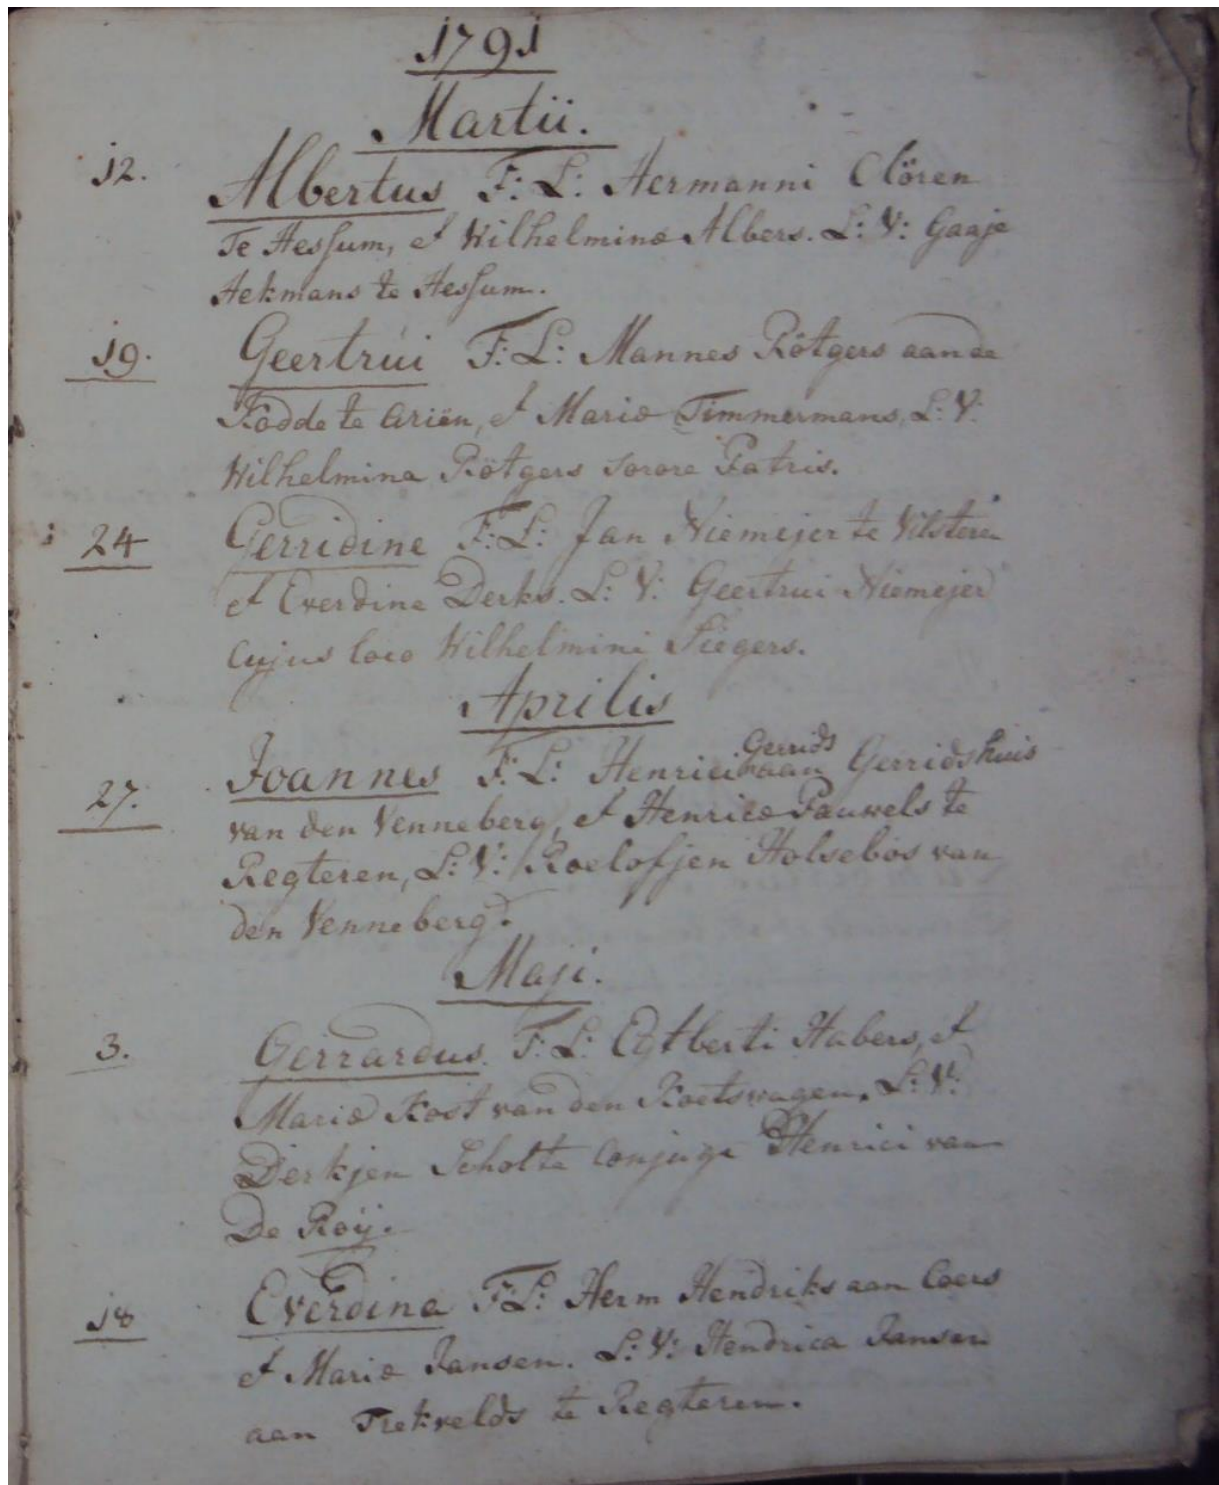 1791
Martii.
12. Albertus F: L: Hermanni Clören
Te Hessum, et Wilhelminæ Albers. L: V: Gaaje
Hekmans te Hessum.
19. Geertrui F: L: Mannes Rötgers aan de
Kodde te Ariën, et Mariæ Timmermans, L: V:
Wilhelmina Rötgers Sorore Patris.
24 Gerridine F: L: Jan Niemejer te Vilsteren
et Everdine Derks. L: V: Geertrui Niemejer
Cujus loco Wilhelmini Siegers.
Aprilis
27. Joannes F: L: Henrici Gerrids aan Gerridshuis
van den Venneberg, et Henricæ Pauwels te
Regteren, L: V: Roelofjen Holsebos van
den Venneberg.
Maji.
3. Gerrardus. F: L: Egtberti Habers, et
Mariæ Kost van den Koetswagen, L: V:
Derkjen Scholte Conjuge Henrici van
De Roij.
18 Everdina F: L: Herm Hendriks aan Coers
et Mariæ Jansen. L: V: Hendrica Jansen
aan Trekvelds te Regteren.